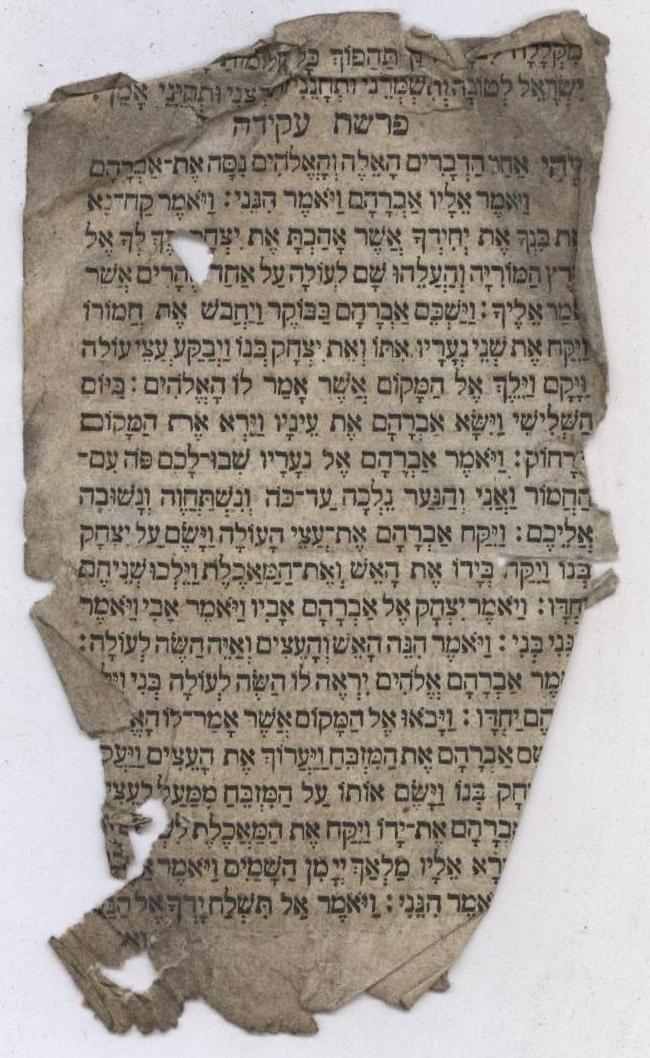 תַּהֲפוֹךְ כָּל
יִשְׂרָאֵל לְטוֹבָה וְתִשְׁמְרֵנִי וּתְחָנֵּנִי וּתְקַיְּמֵנִי אָמֵן
פרשת עקידה
וַיְהִי אַחַר הַדְּבָרִים הָאֵלֶּה וְהָאֱלֹהִים נִסָּה אֶת־אַבְרָהָם
וַיֹּאמֶר אֵלָיו אַבְרָהָם וַיֹּאמֶר הִנֵּנִי: וַיֹּאמֶר קַח־נָא
אֶת בִּנְךָ אֶת יְחִידְךָ אֲשֶׁר אָהַבְתָּ אֶת יִצְחָק לֶךְ אֶל
הַמּוֹרִיָּה וְהַעֲלֵהוּ שָׁם לְעוֹלָה עַל אַחַד הֶהָרִים אֲשֶׁר
אֵלֶיךָ: וַיַּשְׁכֵּם אַבְרָהָם בַּבּוֹקֶר וַיַּחֲבֹשׁ אֶת חֲמוֹרוֹ
וַיִּקַּח אֶת שְׁנֵי נְעָרָיו אִתּוֹ וְאֵת יִצְחָק בְּנוֹ וַיְבַקַּע עֲצֵי עוֹלָה
וַיָּקָם וַיֵּלֶךְ אֶל הַמָּקוֹם אֲשֶׁר אָמַר לוֹ הָאֱלֹהִים: בַּיּוֹם
הַשְּׁלִישִׁי וַיִּשָּׂא אַבְרָהָם אֶת עֵינָיו וַיַּרְא אֶת הַמָּקוֹם
מֵרָחוֹק: וַיֹּאמֶר אַבְרָהָם אֶל נְעָרָיו שְׁבוּ־לָכֶם פֹּה עִם־
הַחֲמוֹר וַאֲנִי וְהַנַּעַר נֵלְכָה עַד־כֹּה וְנִשְׁתַּחֲוֶה וְנָשׁוּבָה
אֲלֵיכֶם: וַיִּקַּח אַבְרָהָם אֶת־עֲצֵי הָעוֹלָה וַיָּשֶׂם עַל יִצְחָק
בְּנוֹ וַיִּקַּח בְּיָדוֹ אֶת הָאֵשׁ וְאֶת־הַמַּאֲכֶלֶת וַיֵּלְכוּ שְׁנֵיהֶם
יַחְדָּו: וַיֹּאמֶר יִצְחָק אֶל אַבְרָהָם אָבִיו וַיֹּאמֶר אָבִי וַיֹּאמֶר
הִנֶּנִּי בְנִי: וַיֹּאמֶר הִנֵּה הָאֵשׁ וְהָעֵצִים וְאַיֵּה הַשֶּׂה לְעוֹלָה:
אַבְרָהָם אֱלֹהִים יִרְאֶה לּוֹ הַשֶּׂה לְעוֹלָה בְּנִי
יַחְדָּו: וַיָּבֹאוּ אֶל הַמָּקוֹם אֲשֶׁר אָמַר־לוֹ
שָׁם אַבְרָהָם אֶת הַמִּזְבֵּחַ וַיַּעֲרוֹךְ אֶת הָעֵצִים
בְּנוֹ וַיָּשֶׂם אוֹתוֹ עַל הַמִּזְבֵּחַ מִמַּעַל לָעֵצִים
אַבְרָהָם אֶת־יָדוֹ וַיִּקַּח אֶת הַמַּאֲכֶלֶת
אֵלָיו מַלְאַךְ יְיָ מִן הַשָּׁמַיִם וַיֹּאמֶר
הִנֵּנִי: וַיֹּאמֶר אַל תִּשְׁלַח יָדְךָ אֶל